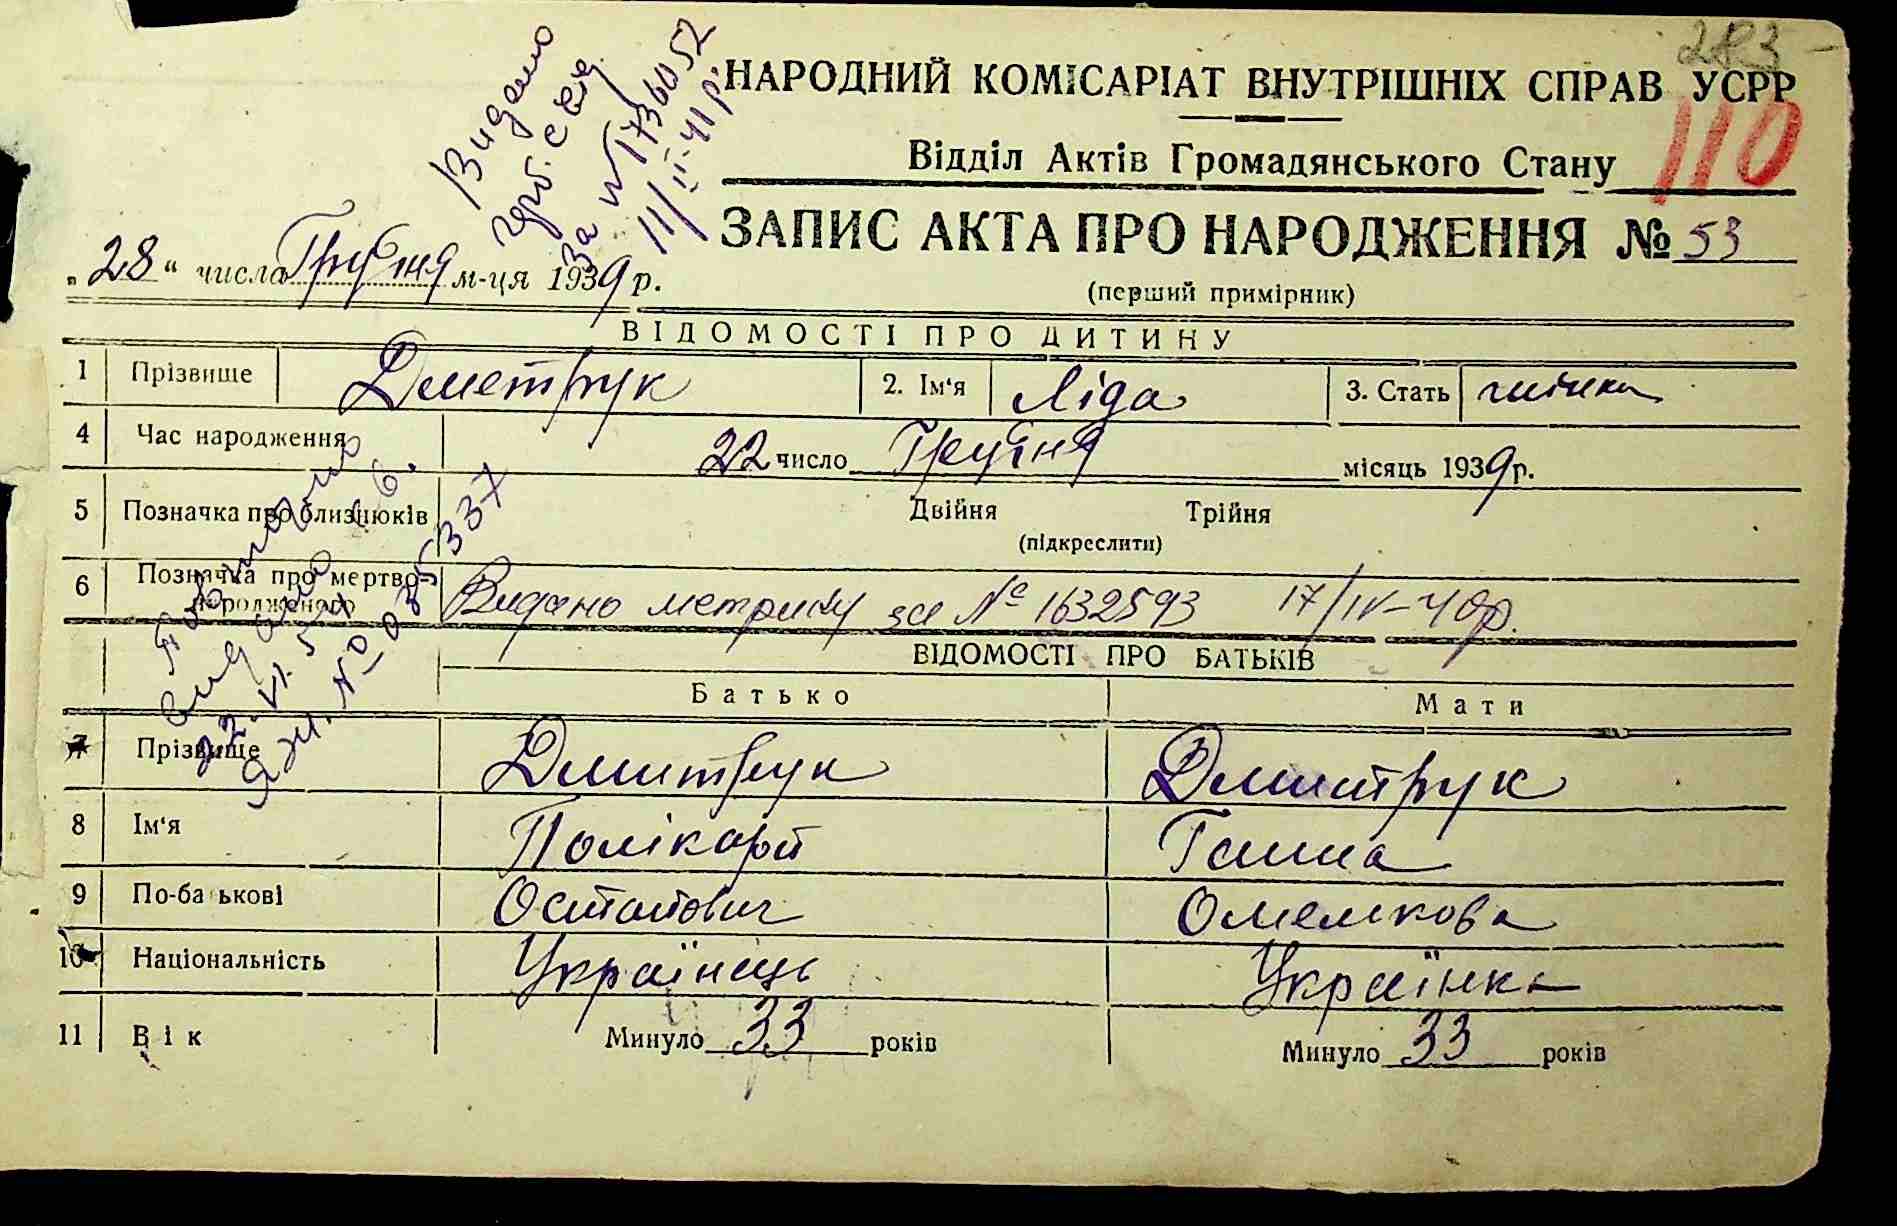 283
НАРОДНИЙ КОМІСАРІАТ ВНУТРІШНІХ СПРАВ УСРР
110
Відділ Актів Громадянського Стану
Видано
за № 1736052
11/II-41р.
ЗАПИС АКТА ПРО НАРОДЖЕННЯ № 53
„28“ числа Грудня м-ця 1939 р.
(перший примірник)
ВІДОМОСТІ ПРО ДИТИНУ
1 Прізвище Дметрук 2. Ім'я Ліда 3. Стать жінка
4 Час народження 22 число Грудня місяць 1939 р.
5 Позначка про близнюків Двійня Трійня
(підкреслити)
6 Позначка про мертво-
народженого Видано метрику за № 1632593 17/IV-40р.
Повторно
видано
ВІДОМОСТІ ПРО БАТЬКІВ
Батько Мати
7 Прізвище Дмитрук Дмитрук
8 Ім'я Полікарп Ганна
9 По-батькові Остапович Омелкова
10 Національність Українець Українка
11 Вік Минуло 33 років Минуло 33 років